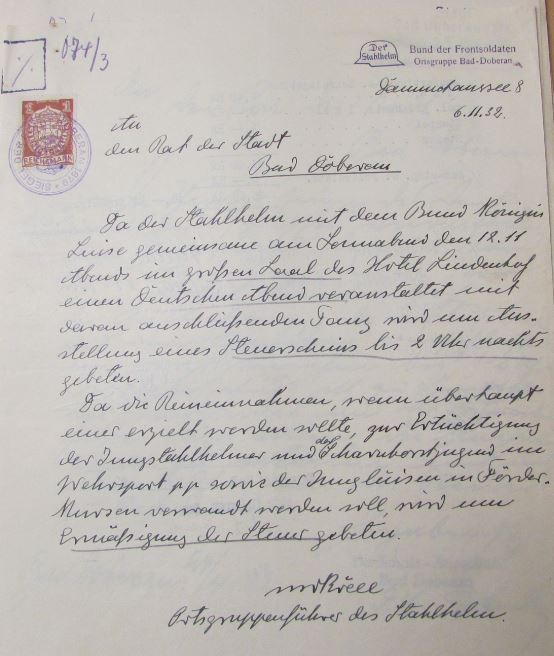 074/3
Der
Stahlhelm
Bund der Frontsoldaten
Ortsgruppe Bad-Doberan.
Dammchaussee 8
6.11.32.
1 1
REICHSMARK
An
den Rat der Stadt
Bad Doberan
Da der Stahlhelm mit dem Bund Königin
Luise gemeinsame am Sonnabend den 12.11
Abends im großen Saal des Hotel Lindenhof
einen Deutschen Abend veranstaltet mit
daran anschließenden Tanz wird um Aus-
stellung eines Steuerscheins bis 2 Uhr nachts
gebeten.
Da die Reineinnahmen, wenn überhaupt
einer erzielt werden sollte, zur Ertüchtigung
der Jungstahlhelmer und der Scharnhorstjugend im
Wehrsport pp sowie der Jungluisen in Förder-
Kursen verwandt werden soll, wird um
Ermäßigung der Steuer gebeten.
Ortsgruppenführer des Stahlhelm.